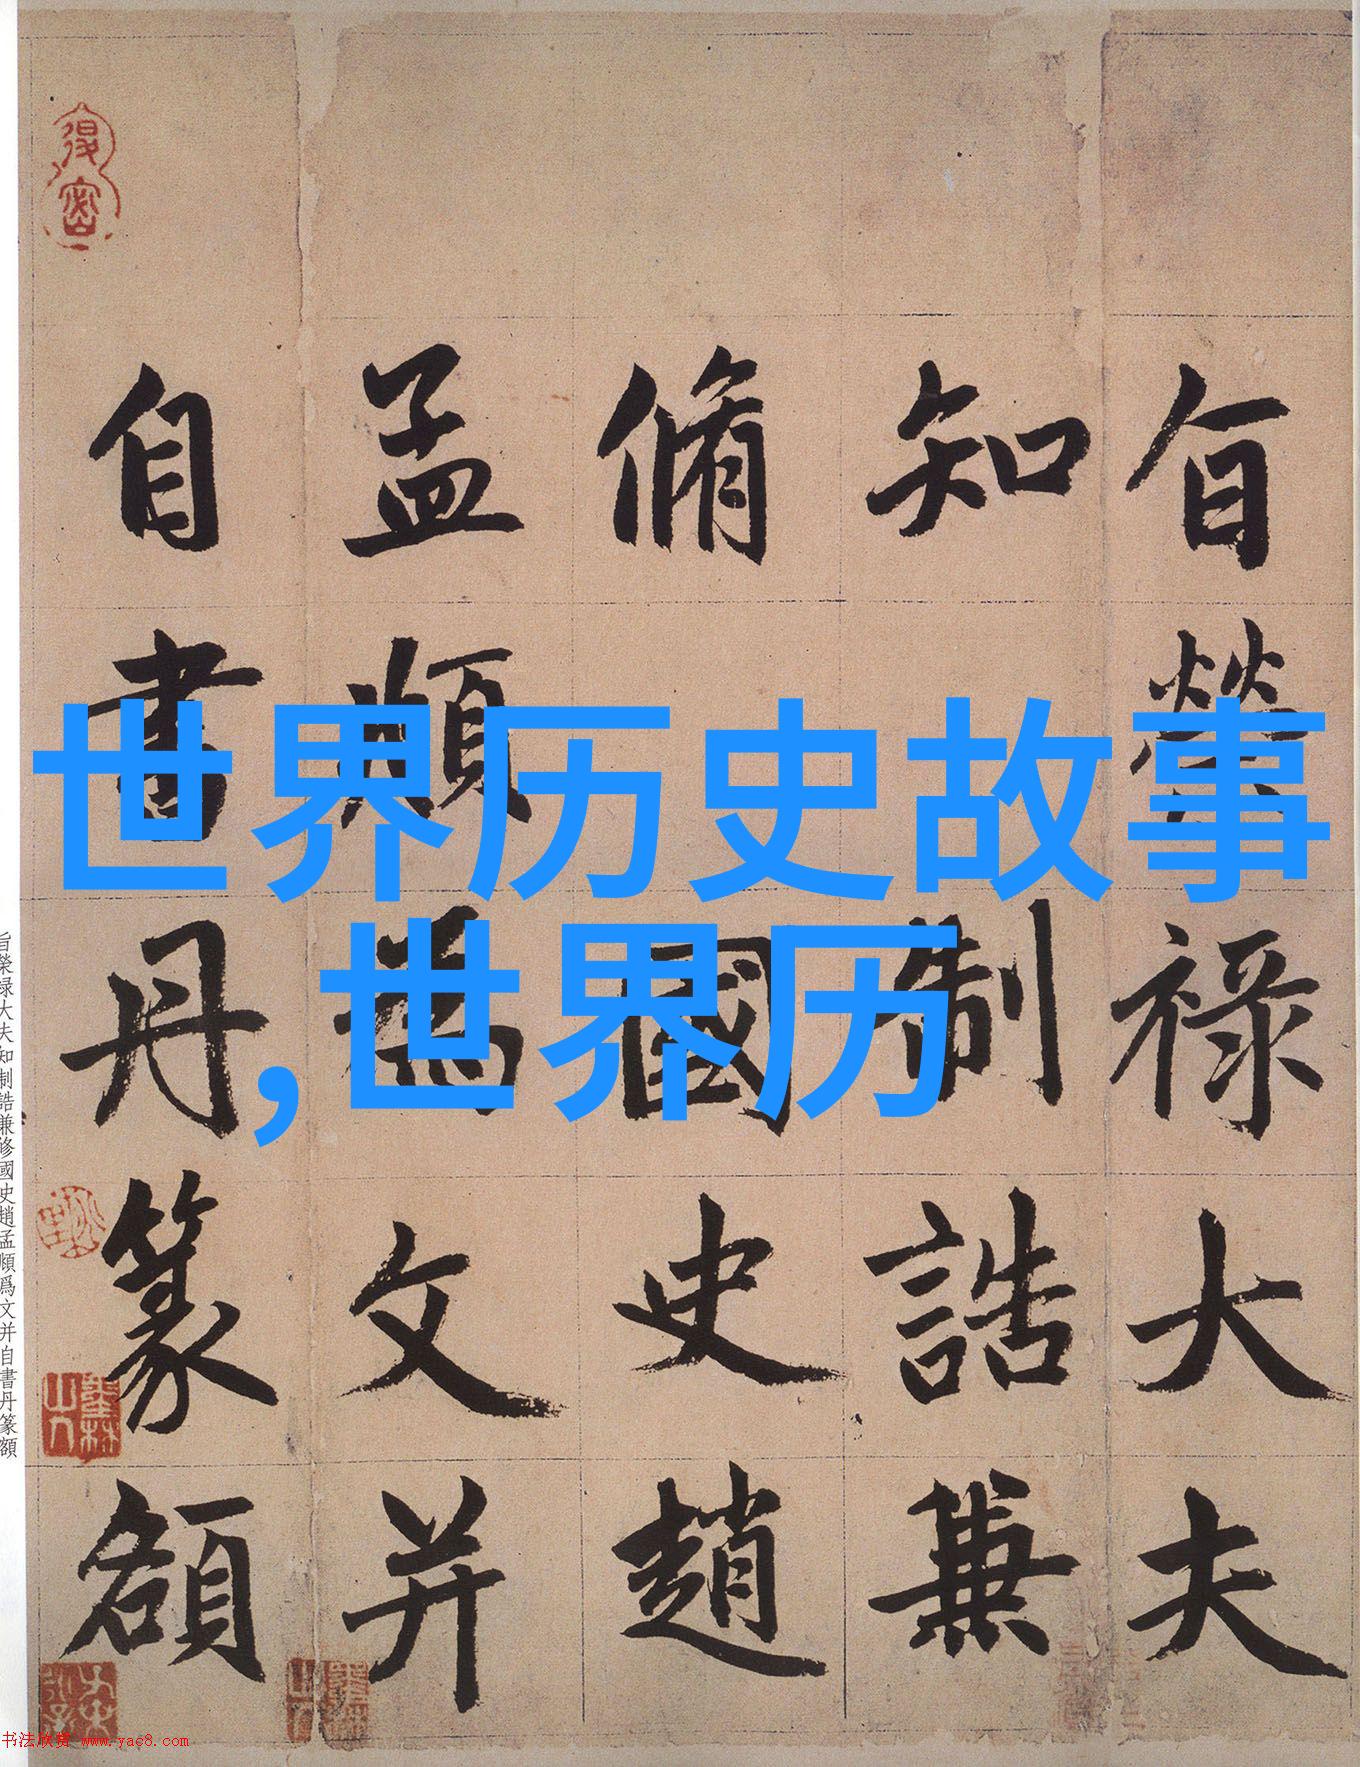 世界历史故事
,世界历
旨榮祿大夫
知制誥兼
脩國史趙
孟頫為文并
自書丹篆額
旨榮禄大夫知制誥兼修國史趙孟頫爲文并自書丹篆額
墨林山人
书法欣赏 www.yac8.com